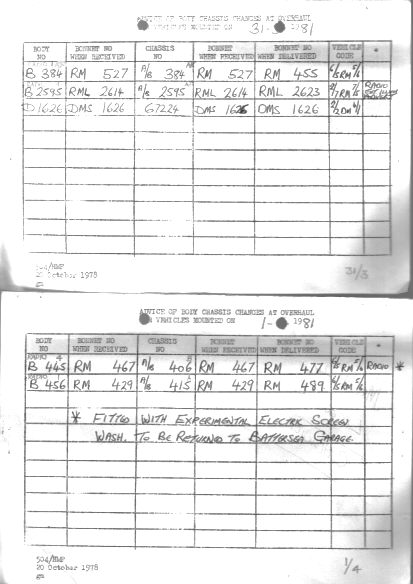 ADVICE OF BODY CHASSIS CHANGES AT OVERHAUL
VEHICLES MOUNTED ON 31- 1981
BODY NO BONNET NO WHEN RECEIVED CHASSIS NO BONNET WHEN RECEIVED BONNET NO WHEN DELIVERED VEHICLE CODE *
B 384 RM 527 A/B 384 RM 527 RM 455 6/5RM5/5
B 2595 RML 2614 A/B 2595 RML 2614 RML 2623 RADIO
D1626 DMS 1626 67224 DMS 1626 DMS 1626
504/HMP
20 October 1978
31/3
ADVICE OF BODY CHASSIS CHANGES AT OVERHAUL
VEHICLES MOUNTED ON 1- 1981
BODY NO BONNET NO WHEN RECEIVED CHASSIS NO BONNET WHEN RECEIVED BONNET NO WHEN DELIVERED VEHICLE CODE *
RADIO
B 445 RM 467 A/B 406 RM 467 RM 477 6/5RM5/5 RADIO *
RADIO
B 456 RM 429 A/B 415 RM 429 RM 489 6/5RM5/5
* FITTED WITH EXPERIMENTAL ELECTRIC SCREEN
WASH. TO BE RETURNED TO BATTERSEA GARAGE
504/HMP
20 October 1978
gn
1/4